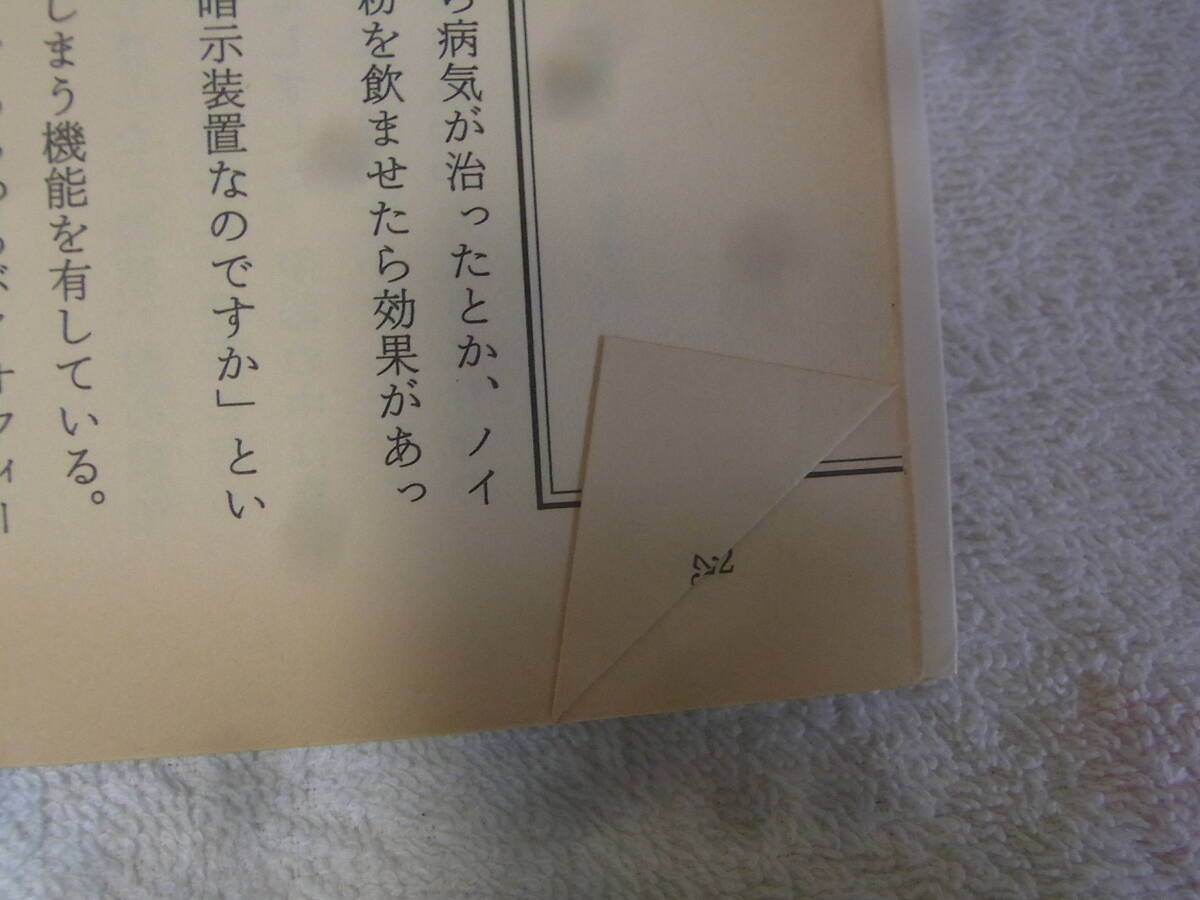 病気が治ったとか、ノイ
粉を飲ませたら効果があっ
暗示装置なのですか」とい
しまう機能を有している。